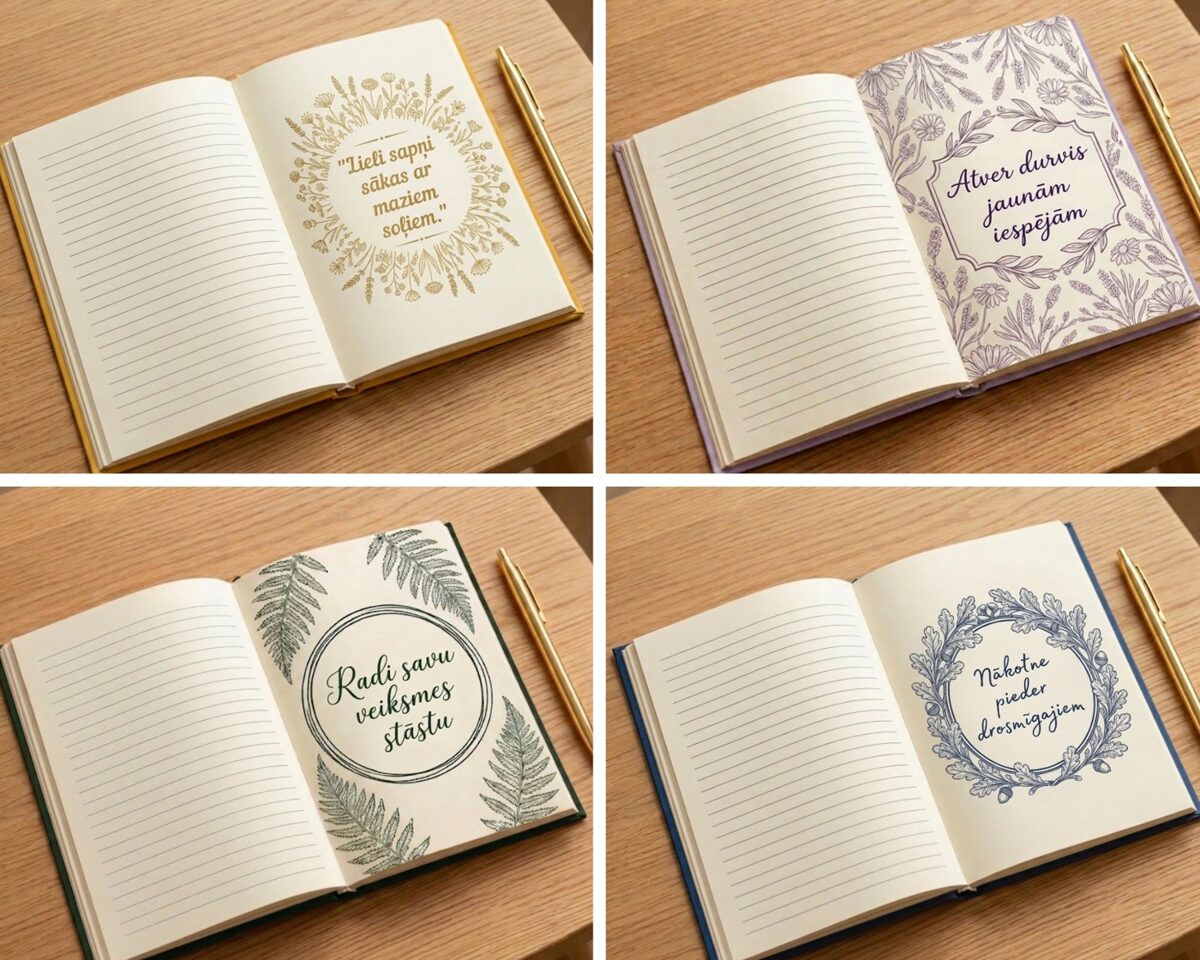 "Lieli sapņi
sākas ar
maziem
soļiem."
Atver durvis
jaunām
iespējām
Radi savu
veiksmes
stāstu
Nākotne
pieder
drosmīgajiem